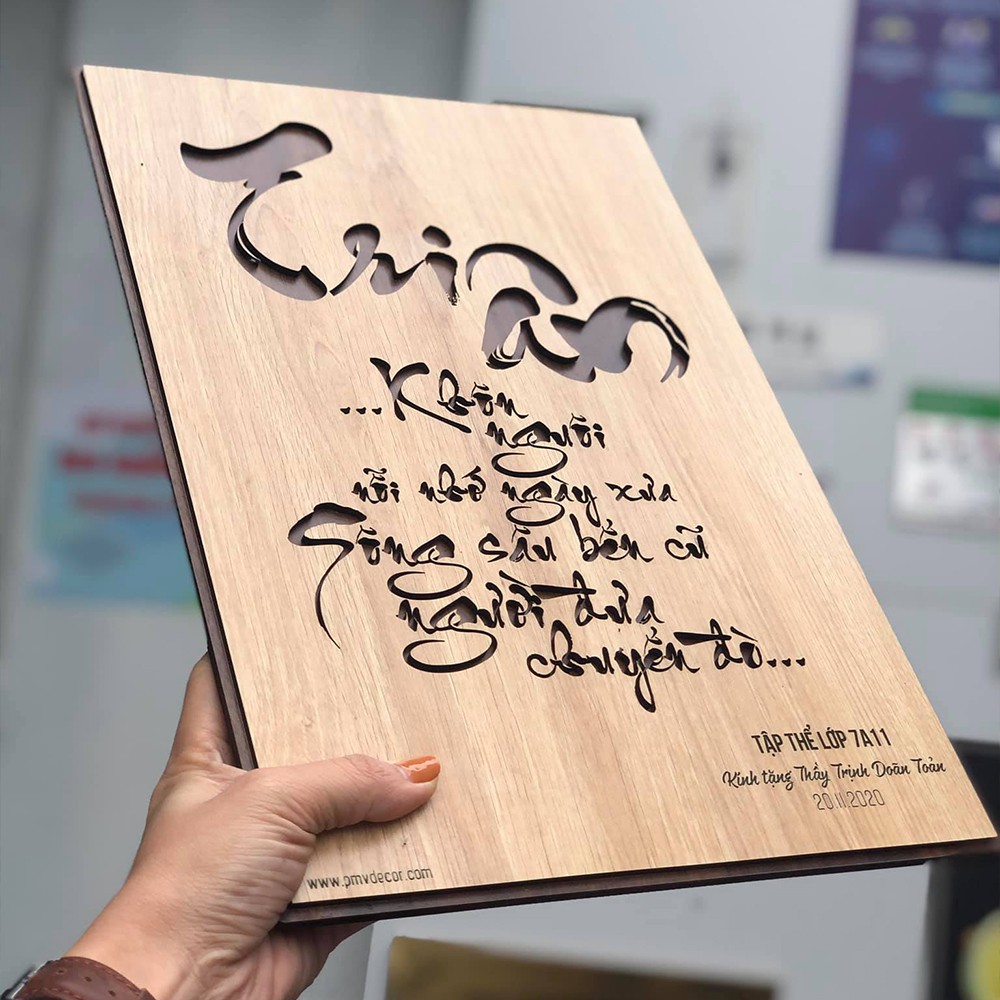 Tri Ân
...Khôn
nguôi
nỗi nhớ ngày xưa
Sông sâu bến cũ
người đưa
chuyến đò...
TẬP THỂ LỚP 7A11
Kính tặng Thầy Trịnh Doãn Toản
20.11.2020
www.pmvdecor.com